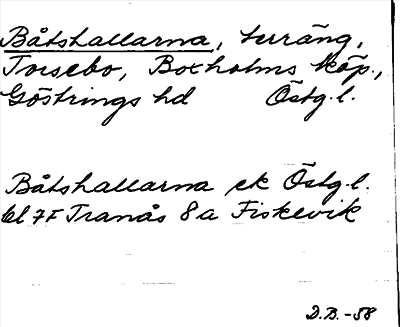 Båtshallarna, terräng,
Torsebo, Boxholms köp.,
Göstrings hd Östg.l.
Båtshallarna ek Östg.l.
bl 7F Tranås 8a Fiskevik
D.B. -58